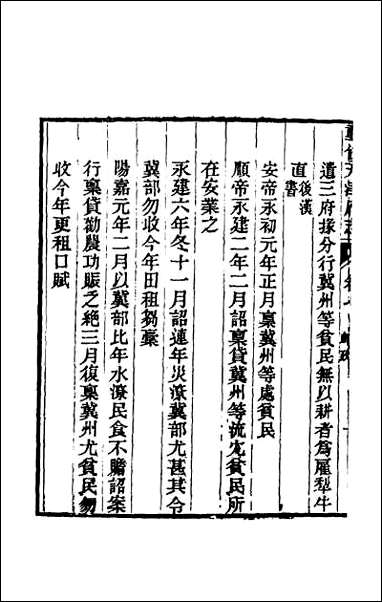 重修天津府志
遣三府掾分行冀州等貧民無以耕者爲雇犁牛
直後漢
書
安帝永初元年正月稟冀州等處貧民
順帝永建二年二月詔稟貸冀州等流宂貧民所
在安業之
永建六年冬十一月詔連年災潦冀部尤甚其令
冀部勿收今年田租芻稾
陽嘉元年二月以冀部比年水潦民食不贍詔案
行稟貸勸農功賑乏絶三月復稟冀州尤貧民勿
收今年更租口賦